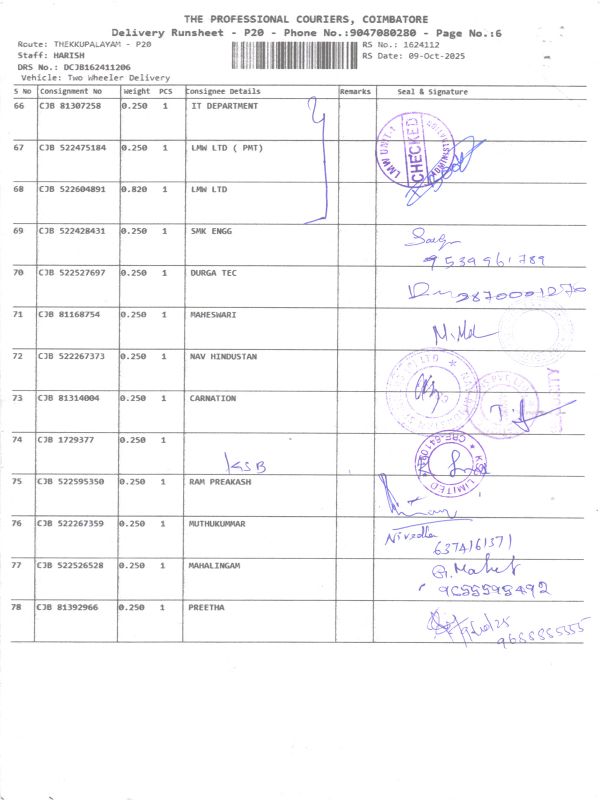 THE PROFESSIONAL COURIERS, COIMBATORE
Delivery Runsheet - P20 - Phone No.:9047080280 - Page No.:6
Route: THEKKUPALAYAM - P20 RS No.: 1624112
Staff: HARISH RS Date: 09-Oct-2025
DRS No.: DCJB162411206
Vehicle: Two Wheeler Delivery
S No Consignment No Weight PCS Consignee Details Remarks Seal & Signature
66 CJB 81307258 0.250 1 IT DEPARTMENT
67 CJB 522475184 0.250 1 LMW LTD ( PMT) LMW UNIT-1 CHECKED
68 CJB 522604891 0.820 1 LMW LTD
69 CJB 522428431 0.250 1 SMK ENGG
9539961789
70 CJB 522527697 0.250 1 DURGA TEC
9870001270
71 CJB 81168754 0.250 1 MAHESWARI
72 CJB 522267373 0.250 1 NAV HINDUSTAN
73 CJB 81314004 0.250 1 CARNATION
74 CJB 1729377 0.250 1
KSB LIMITED
75 CJB 522595350 0.250 1 RAM PREAKASH
76 CJB 522267359 0.250 1 MUTHUKUMMAR
Nivedha
6374161371
77 CJB 522526528 0.250 1 MAHALINGAM
9055595492
78 CJB 81392966 0.250 1 PREETHA
9688885555